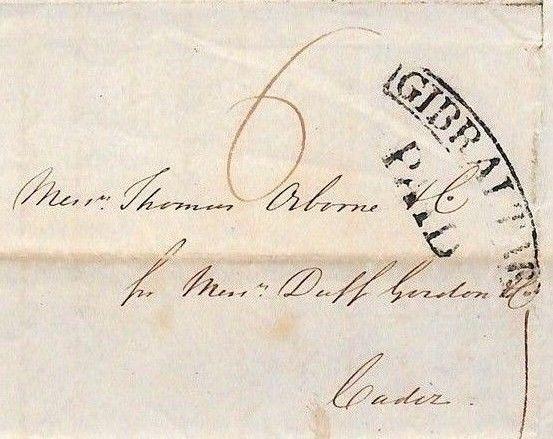 6
GIBRALTAR
PAID
Messrs. Thomas Osborne & Co
for Messrs. Duff Gordon & Co.
Cadiz.